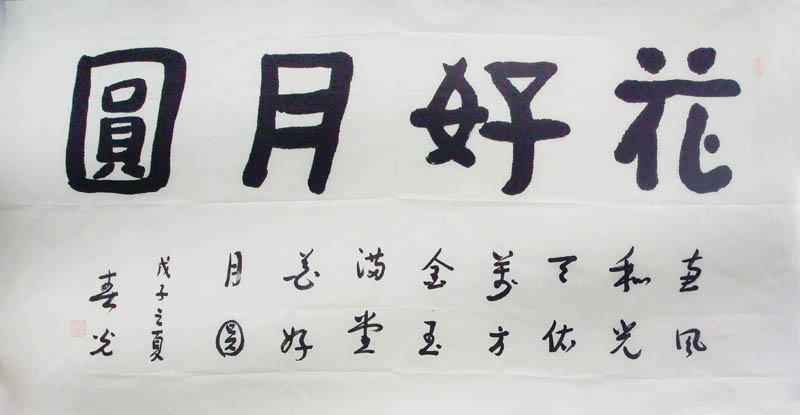 花好月圓
惠風
和光
天佑
萬方
金玉
滿堂
花好
月圓
戊子之夏
春光